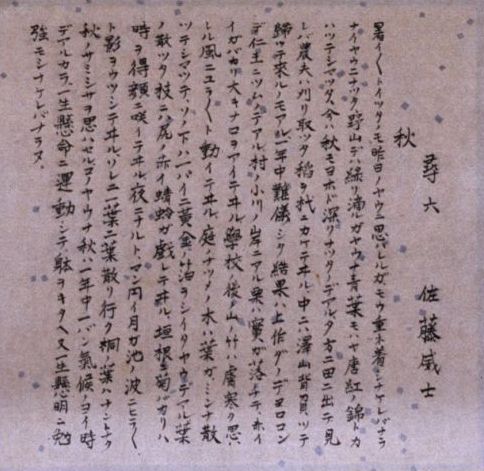 尋六　佐藤威士
秋
暑イ〱トイツタノモ昨日ノヤウニ思ハレルガモウ重ネ着シナケレバナラ
ナイヤウニナツタ野山デハ緑リ滴ルガヤウナ青葉モハヤ唐紅ノ錦トカ
ハツテシマツタ今ハ秋モヨホド深リナツタノデアル夕方ニ田ニ出デ見
レバ農夫ハ刈リ取ツタ稲ヲ杙ニカケテヰル中ニハ澤山背負ツテ
歸ツテ來ルノモアル一年中難儀シタ結果ハ上作ダノデヨロコン
デ仁王ニツムノデアル村ノ小川ノ岸ニアル栗ハ實ガ落チテ、ホイ
イガバカリ大キナ口ヲアイテヰル學校ノ後ノ山ノ竹ハ膚寒ク思ハ
レル風ニユラ〱ト動イテヰル庭ノナツメノ木ハ葉ガミンナ散
ツテシマツテ、ソノ下ハ一パイニ黄金ノ油ヲシイタヤウデアル葉
ノ散ツタ枝ニハ尾ノ赤イ蜻蛉ガ戯レテヰル垣根ノ菊バカリハ
時ヲ得顔ニ咲イテヰル夜ニナルトマン円イ月ガ池ノ波ニヒラ〱
ト影ヲウツシテヰルソレニ一葉二葉散リ行ク桐ノ葉ハナントナク
秋ノサミシサヲ思ハセルコノヤウナ秋ハ一年中一バン氣候ノヨイ時
デアルカラ一生懸命ニ運動シテ躰ヲキタヘ又一生懸明ニ勉
強モシナケレバナラヌ。